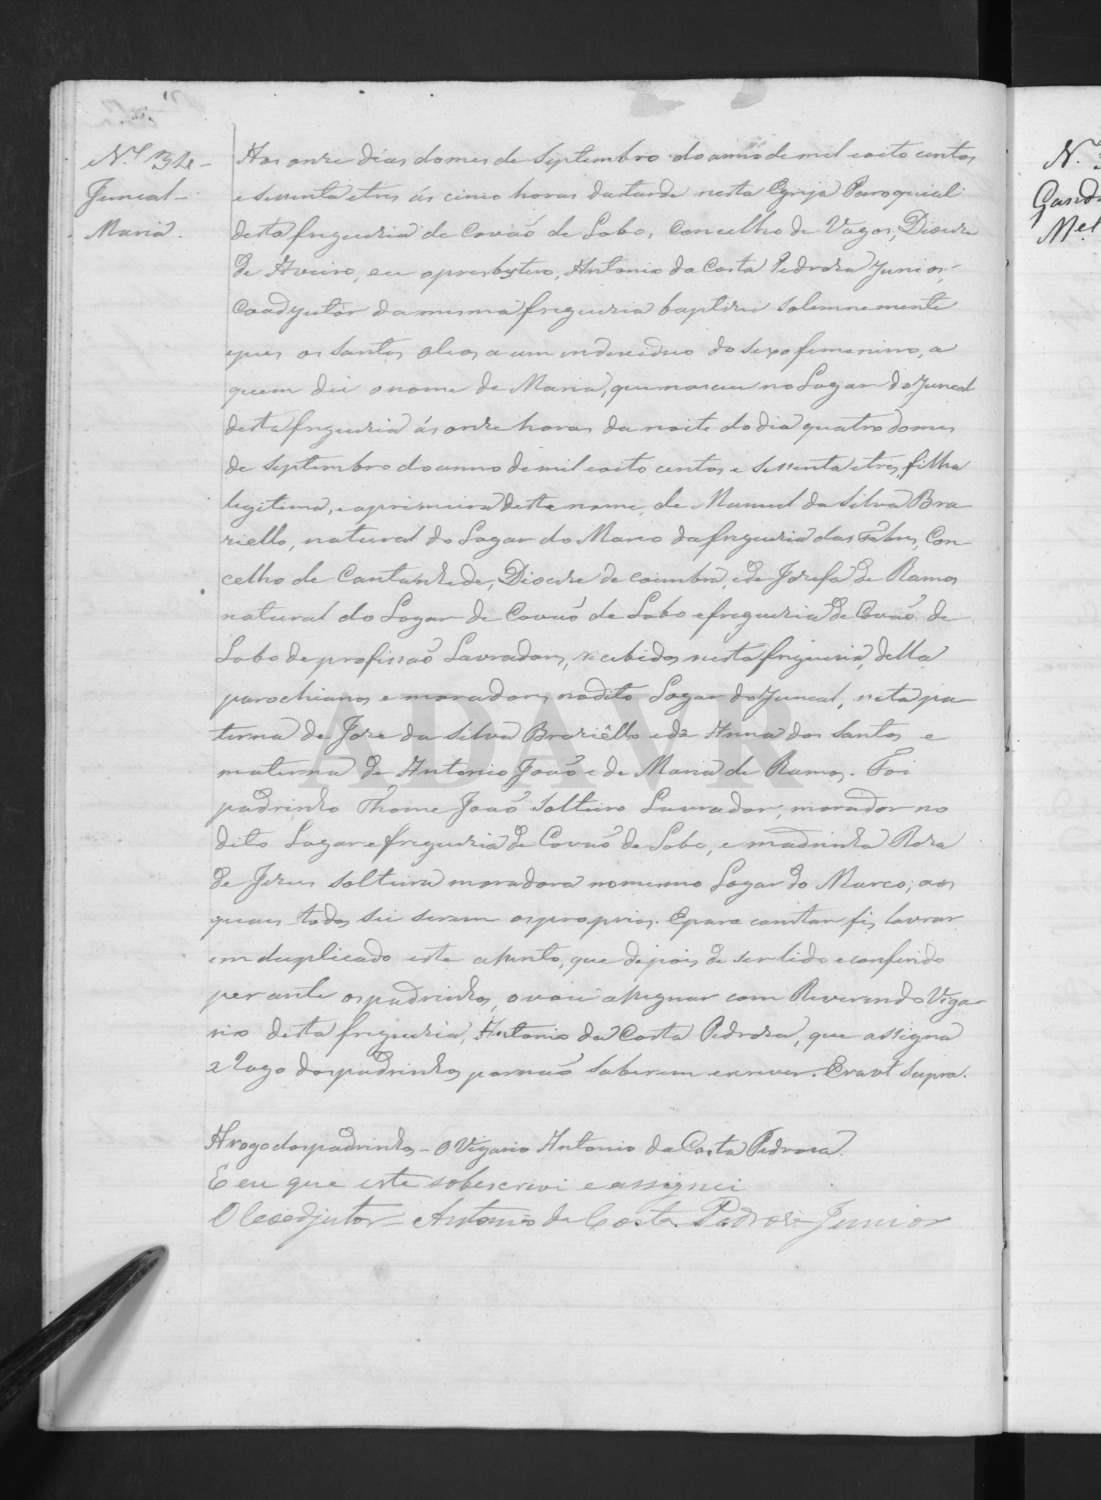 Nº 34 -
Juncal -
Maria.
Aos onze dias do mes de Septembro do anno de mil e oito centos
e sessenta e tres ás cinco horas da tarde nesta Egreja Paroquial
desta freguezia de Covão de Lobo, Concelho de Vagos, Diocese
de Aveiro, eu o presbytero, Antonio da Costa Pedroza Junior,
Coadjutor da mesma freguezia baptizei solemnemente
e pus os santos oleos a um individuo do sexo femenino, a
quem dei o nome de Maria, que nasceu no Logar do Juncal
desta freguezia ás onze horas da noite do dia quatro do mes
de Septembro do anno de mil e oito centos e sessenta e tres, filha
legitima, e a primeira deste nome, de Manuel da Silva Bra
ziello, natural do Logar do Marco da freguezia das Febres, Con-
celho de Cantanhede, Diocese de Coimbra, e de Jozefa de Ramos
natural do Logar de Covaõ de Lobo e freguezia de Covaõ de
Lobo de profissaõ Lavradores, recebidos nesta freguezia, della
parochianos e moradores no dito Logar do Juncal, neta pa
terna de Joze da Silva Braziêllo e de Anna dos Santos e
materna de Antonio Joaõ e de Maria de Ramos. Foi
padrinho Thome Joaõ Solteiro Lavrador, morador no
dito Logar e freguezia de Covaõ de Lobo, e madrinha Roza
de Jezus solteira moradora no mesmo Logar do Marco; aos
quaes todos sei serem os proprios. E para constar fiz lavrar
em duplicado este assento, que depois de ser lido e conferido
perante os padrinhos, o vou assignar com Reverendo Viga-
rio desta freguezia, Antonio da Costa Pedroza, que assigna
a rogo dos padrinhos por naõ saberem escrever. Era ut supra.
A rogo dos padrinhos - O Vigario Antonio da Costa Pedroza.
E eu que este sobescrevi e assignei
O Coadjutor - Antonio da Costa Pedroza Junior
ADAVR
N.
Gand
Mel